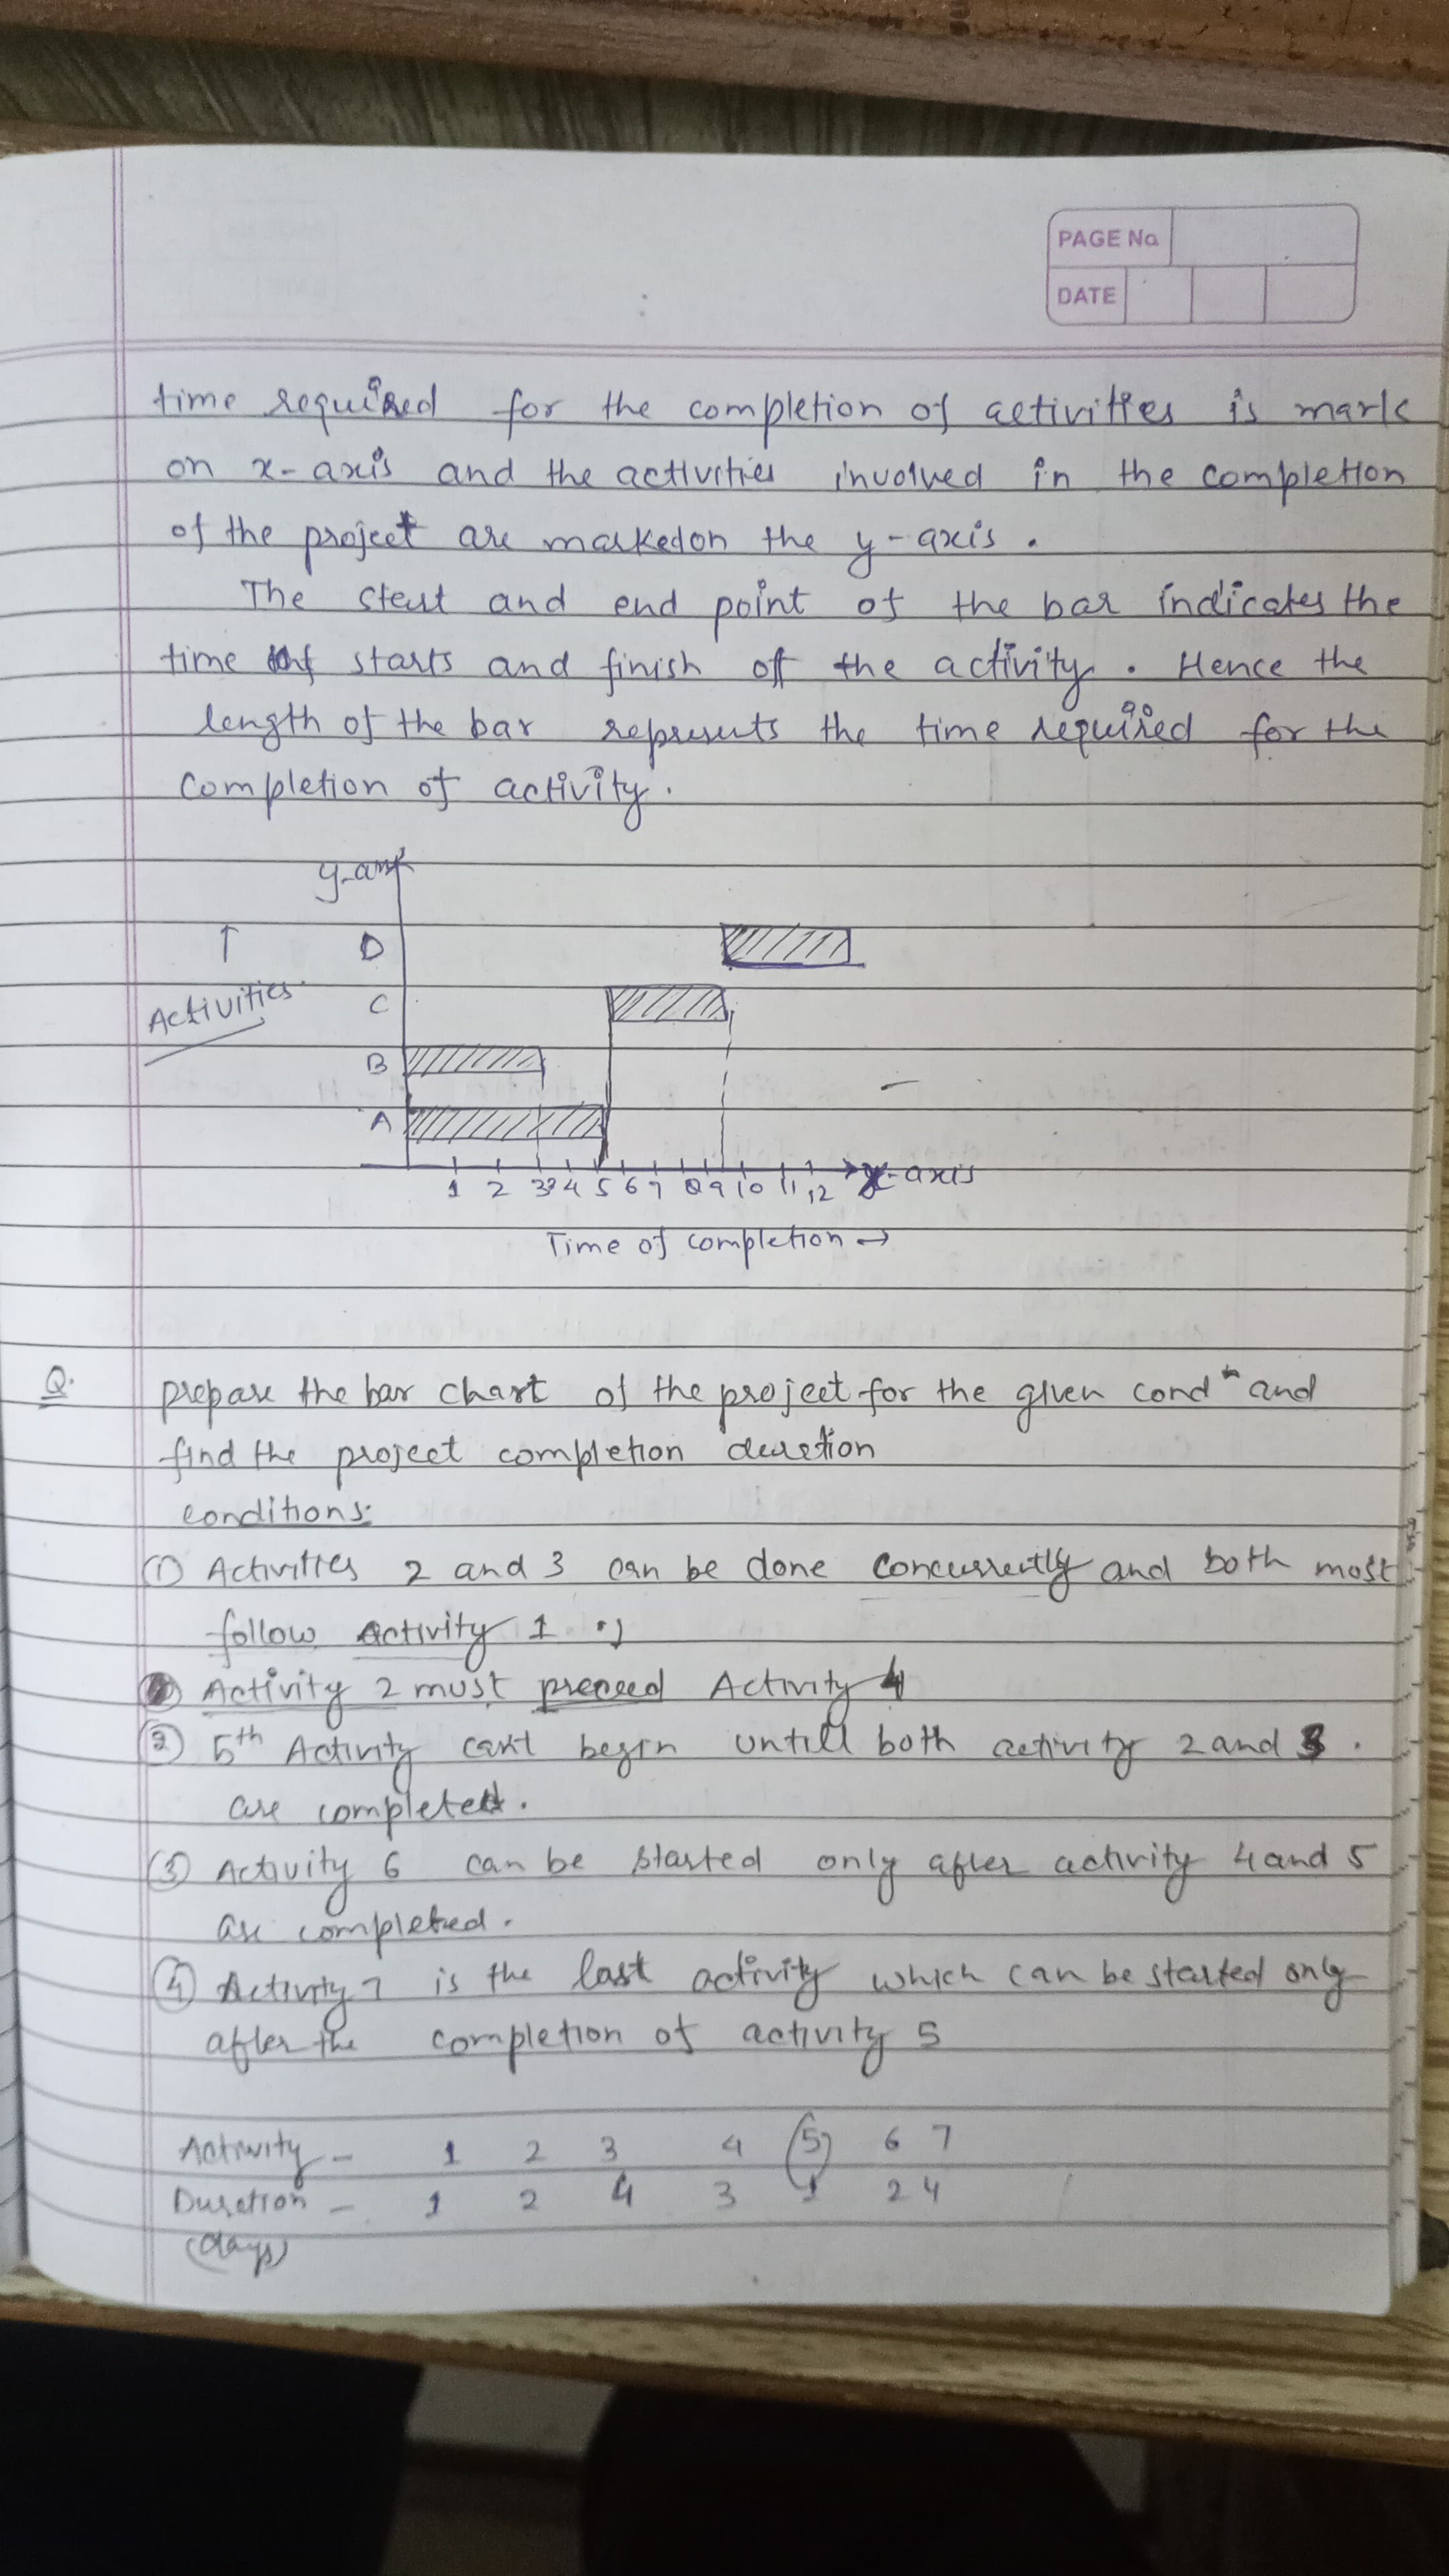 PAGE No.
DATE
time required for the completion of activities is mark
on x-axis and the activities involved in the completion
of the project are marked on the y-axis.
The start and end point of the bar indicates the
time of starts and finish off the activity. Hence the
length of the bar represents the time required for the
completion of activity.
y-axis
↑ D
Activities C
B
A
1 2 3 4 5 6 7 8 9 10 11 12 x-axis
Time of completion →
Q. prepare the bar chart of the project for the given condn and
find the project completion duration
conditions:
① Activities 2 and 3 can be done concurrently and both most
follow Activity 1.
Activity 2 must preceed Activity 4
② 5th Activity can't begin untill both activity 2 and 3.
are completed.
③ Activity 6 can be started only after activity 4 and 5
are completed.
④ Activity 7 is the last activity which can be started only
after the completion of activity 5
Activity - 1 2 3 4 5 6 7
Duration - 1 2 4 3 1 2 4
(days)